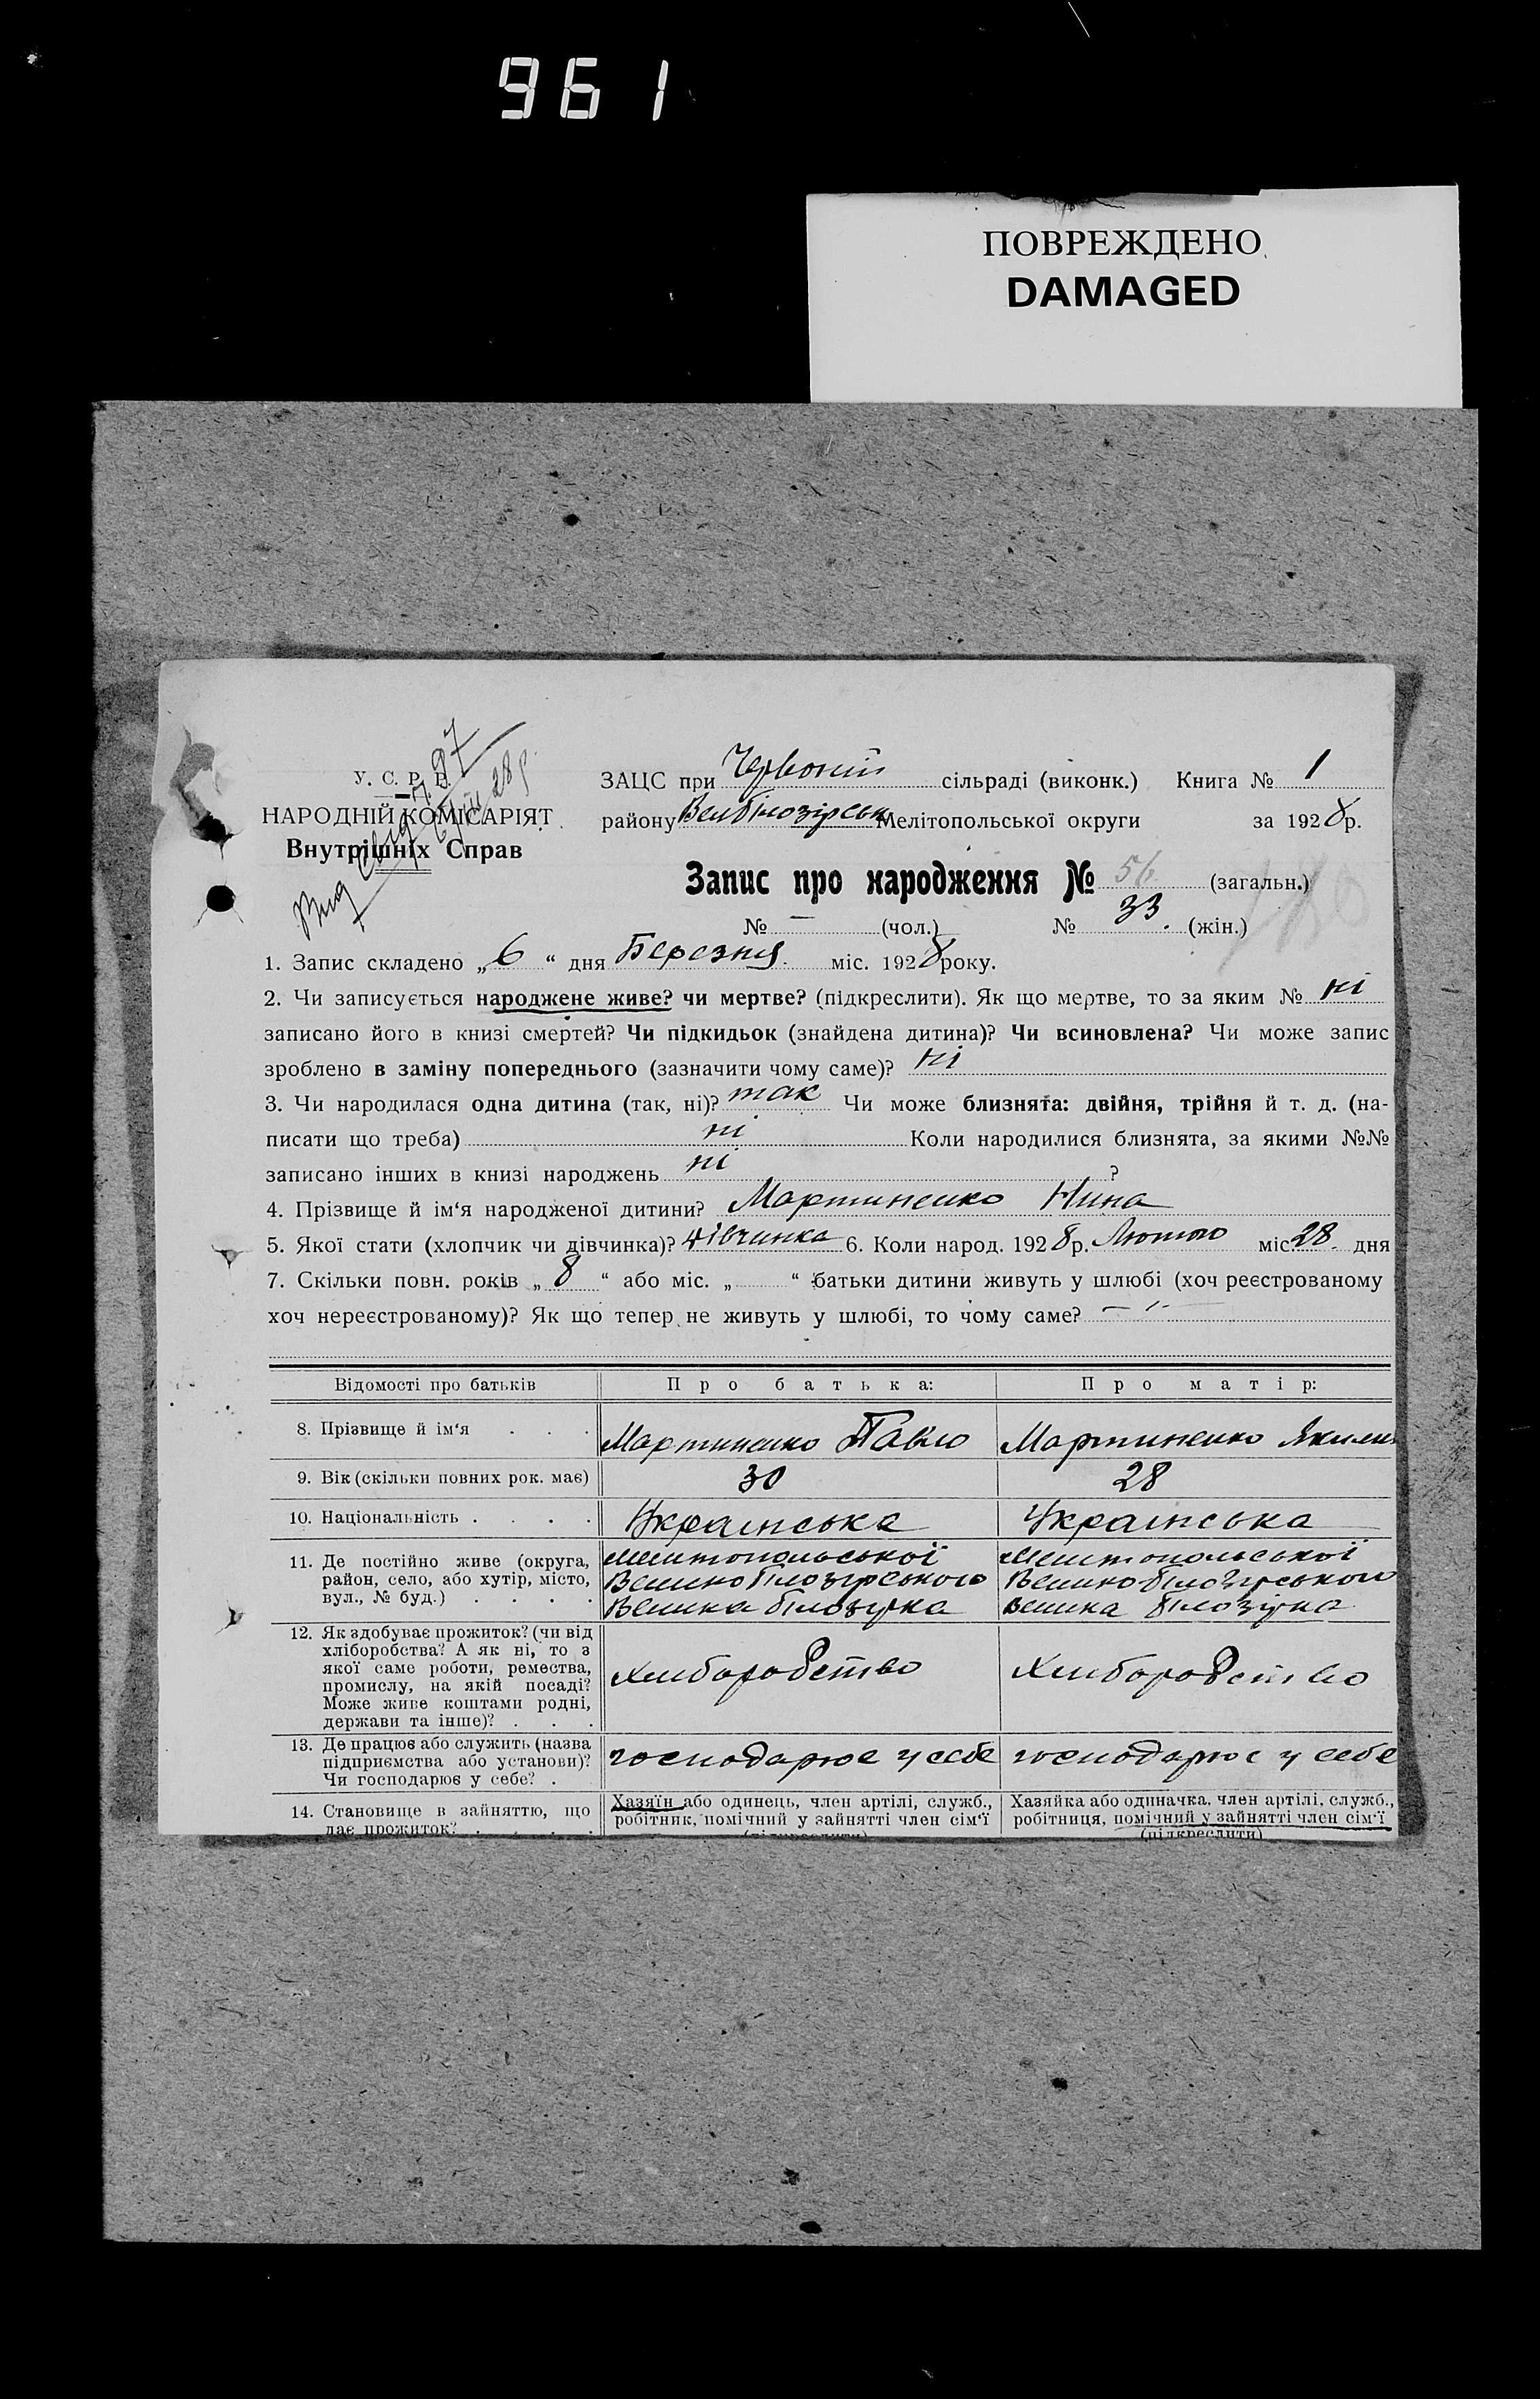 961
ПОВРЕЖДЕНО
DAMAGED
У. С. Р. Р.
НАРОДНІЙ КОМІСАРІЯТ
Внутрішніх Справ
ЗАЦС при Червоній сільраді (виконк.) Книга № 1
району Велбілозірськ Мелітопольської округи за 1928 р.
Запис про народження № 56 (загальн.)
№ — (чол.) № 33. (жін.)
1. Запис складено „6“ дня Березня міс. 1928 року.
2. Чи записується народжене живе? чи мертве? (підкреслити). Як що мертве, то за яким № ні
записано його в книзі смертей? Чи підкидьок (знайдена дитина)? Чи всиновлена? Чи може запис
зроблено в заміну попереднього (зазначити чому саме)? ні
3. Чи народилася одна дитина (так, ні)? так Чи може близнята: двійня, трійня й т. д. (на-
писати що треба) ні Коли народилися близнята, за якими №№
записано інших в книзі народжень ні ?
4. Прізвище й ім‘я народженої дитини? Мартиненко Нина
5. Якої стати (хлопчик чи дівчинка)? дівчинка 6. Коли народ. 1928 р. Лютого міс. 28 дня
7. Скільки повн. років „8“ або міс. „ “ батьки дитини живуть у шлюбі (хоч реєстрованому
хоч нереєстрованому)? Як що тепер не живуть у шлюбі, то чому саме? — „ —
Відомості про батьків Про батька: Про матір:
8. Прізвище й ім‘я . . . Мартиненко Павло Мартиненко Якилин
9. Вік (скільки повних рок. має) 30 28
10. Національність . . . . Українська Українська
11. Де постійно живе (округа, Мелітопольської Мелітопольської
район, село, або хутір, місто, Великобілозірського Великобілозірського
вул., № буд.) . . . . Велика білозірка Велика білозірка
12. Як здобуває прожиток? (чи від
хліборобства? А як ні, то з
якої саме роботи, ремества, Хліборобство Хліборобство
промислу, на якій посаді?
Може живе коштами родні,
держави та інше)? . . .
13. Де працює або служить (назва господарює у себе господарює у себе
підприємства або установи)?
Чи господарює у себе? .
14. Становище в зайняттю, що Хазяїн або одинець, член артілі, служб., Хазяйка або одиначка, член артілі, служб.,
дає прожиток? . . . . робітник, помічний у зайнятті член сім‘ї робітниця, помічний у зайнятті член сім‘ї
(підкреслити) (підкреслити)